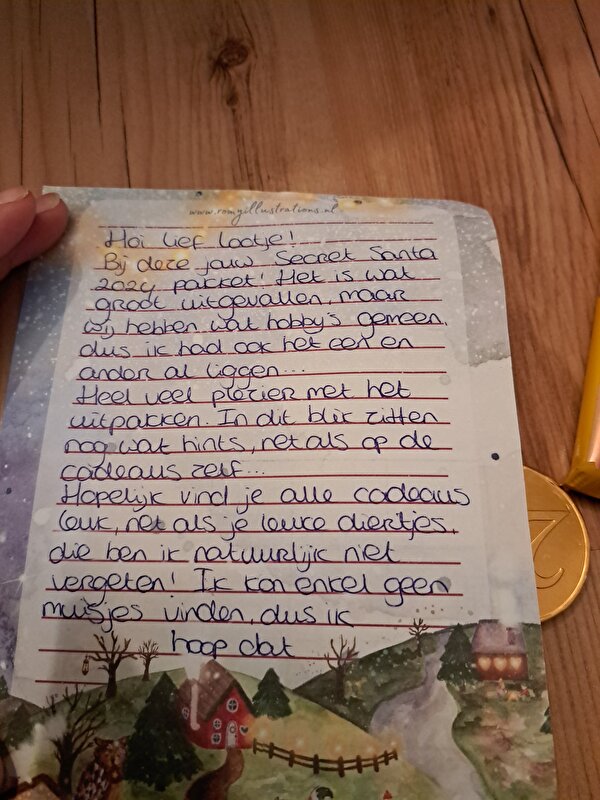 www.romyillustrations.nl
Hoi lief lootje!
Bij deze jouw Secret Santa
2024 pakket! Het is wat
groot uitgevallen, maar
wij hebben wat hobby's gemeen,
dus ik had ook het een en
ander al liggen...
Heel veel plezier met het
uitpakken. In dit blik zitten
nog wat hints, net als op de
cadeaus zelf...
Hopelijk vind je alle cadeaus
leuk, net als je leuke diertjes,
die ben ik natuurlijk niet
vergeten! Ik kon enkel geen
muisjes vinden, dus ik
hoop dat